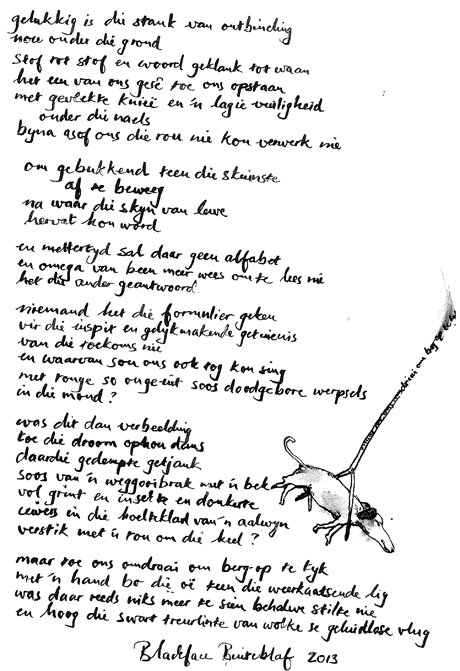 gelukkig is die stank van ontbinding
nou onder die grond
stof tot stof en woord geklank tot waan
het een van ons gesê toe ons opstaan
met gevlekte knieë en 'n lagie vuiligheid
onder die naels
byna asof ons die rou nie kon verwerk nie
om gebukkend teen die skuinste
af te beweeg
na waar die skyn van lewe
hervat kon word
en mettertyd sal daar geen alfabet
en omega van been meer wees om te lees nie
het die ander geantwoord
niemand het die formulier geken
vir die inspit en gelykmakende getuienis
van die toekoms nie
en waarvan sou ons ook tog kon sing
met tonge so ongeuit soos doodgebore werpsels
in die mond?
was dit dan verbeelding
toe die droom ophou dans
daardie gedempte getjank
soos van 'n weggooibrak met 'n bek
vol grint en insekte en donkerte
iewers in die koelteklad van 'n aalwyn
verstik met 'n tou om die keel?
maar toe ons omdraai om berg-op te kyk
met 'n hand bo die oë teen die weerkaatsende lig
was daar reeds niks meer te sien behalwe stilte nie
en hoog die swart treurlinte van wolke se geluidlose vlug
Blackface Buiteblaf 2013
omdraai om berg op te